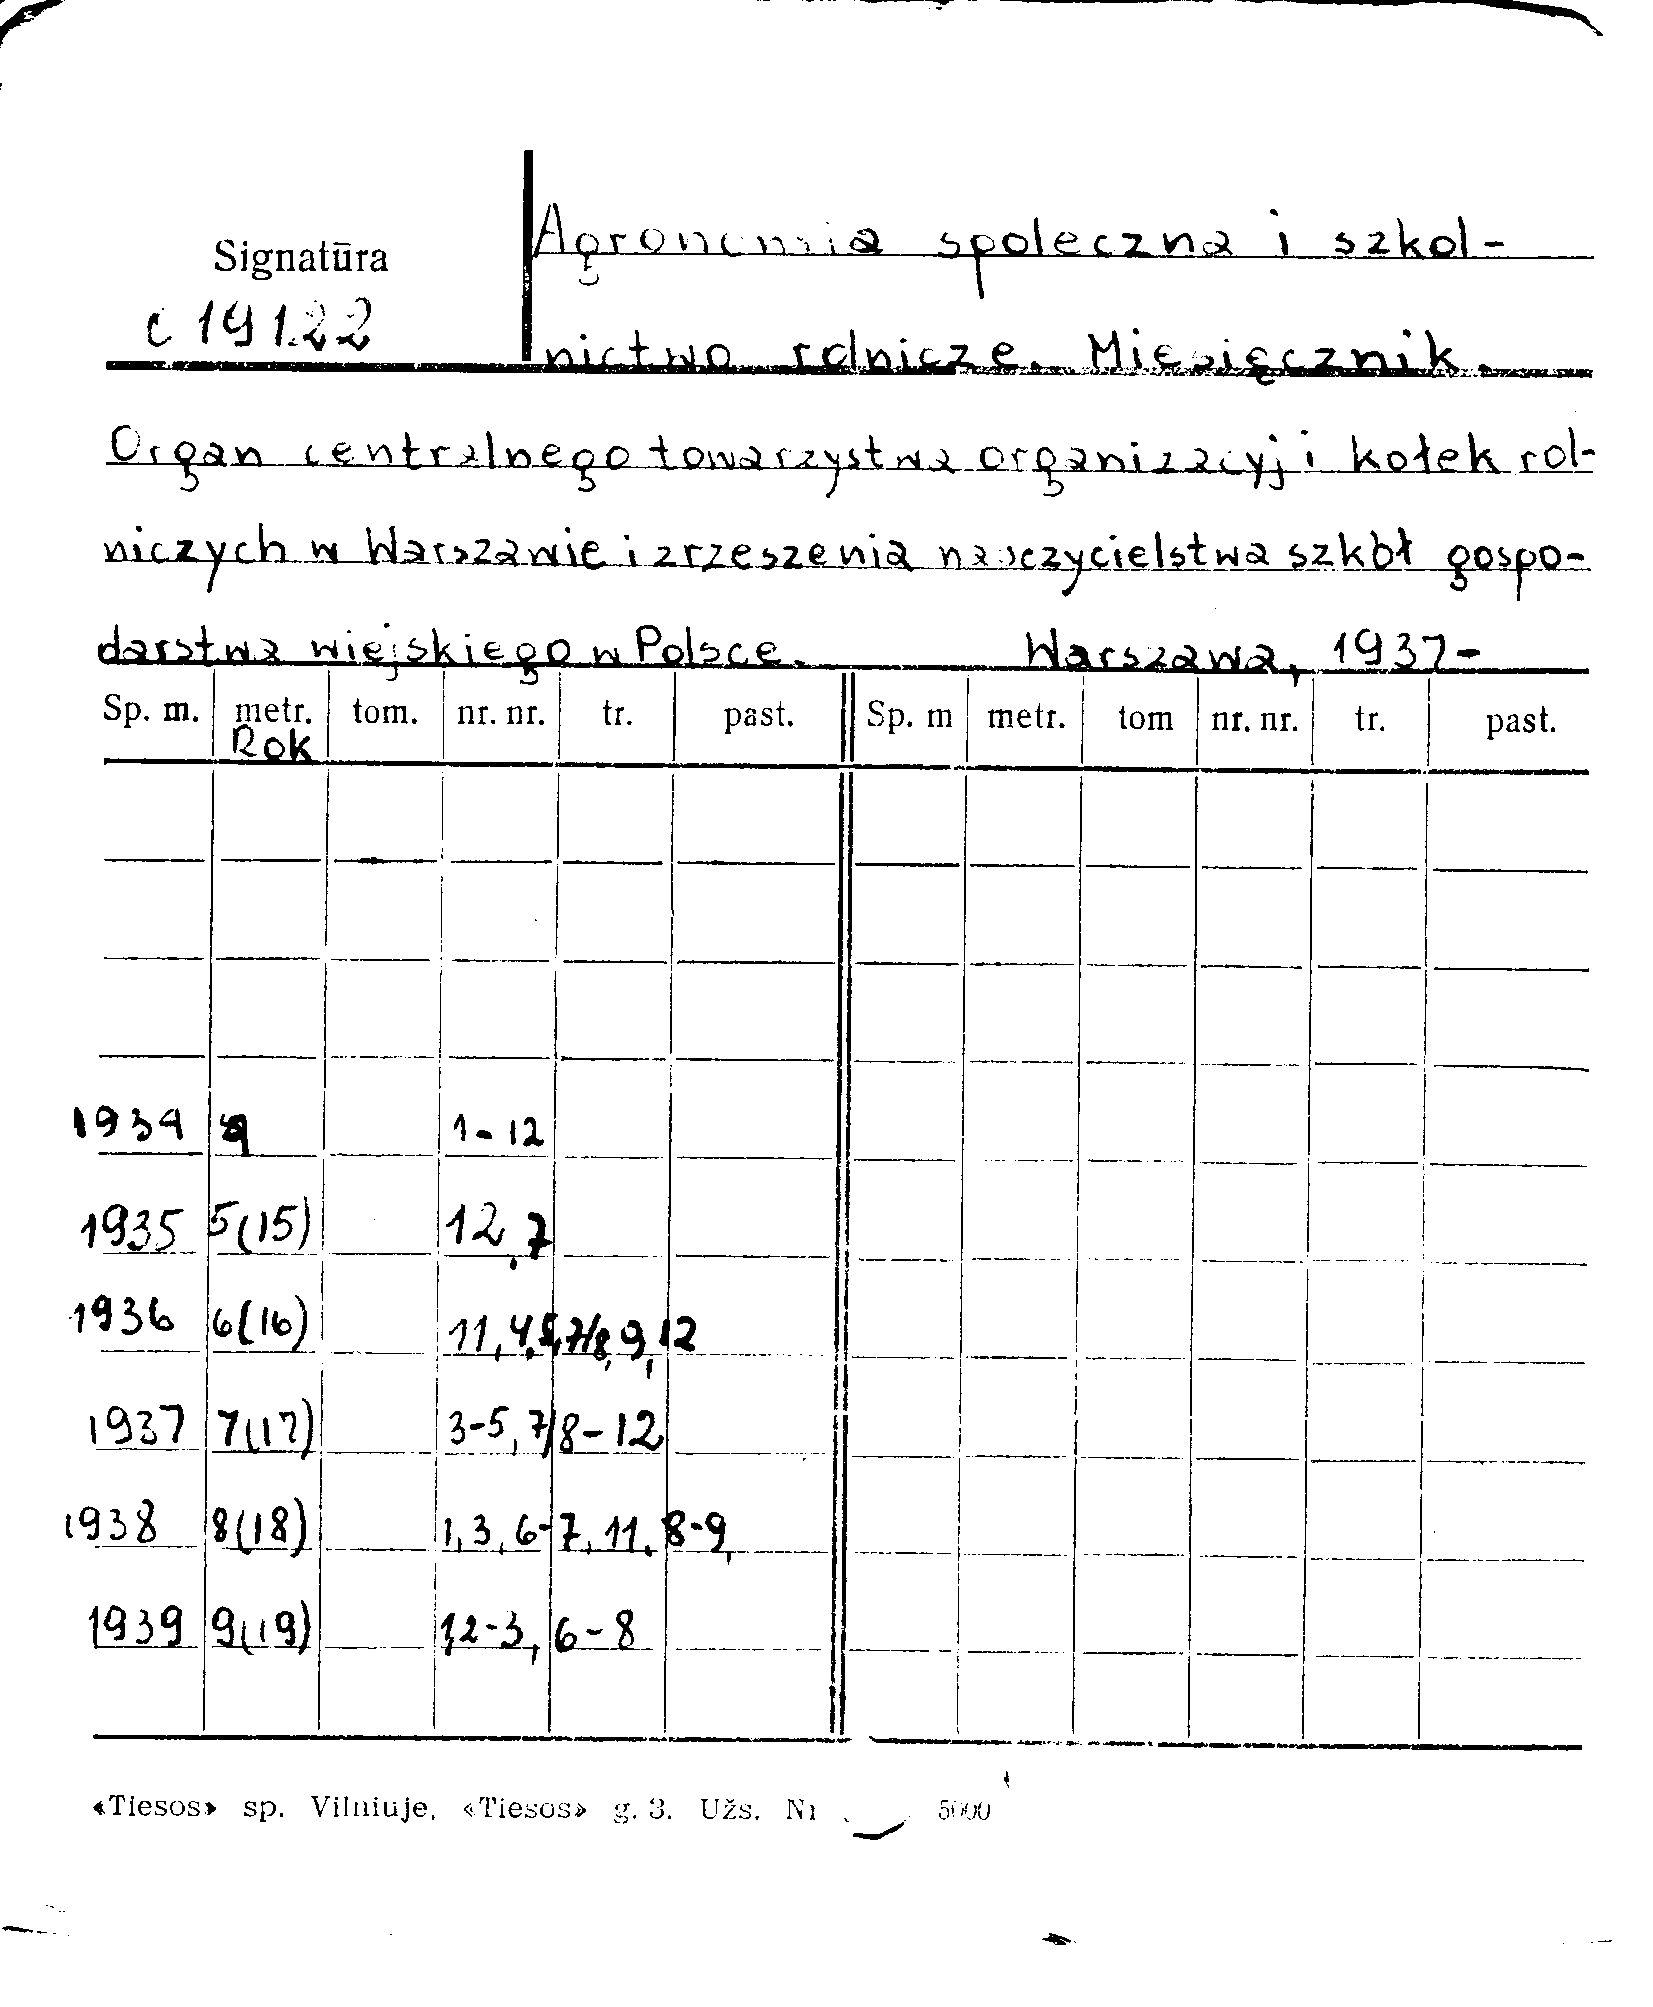 Signatūra
c 19122
Agronomia spoleczna i szkol-
nictwo rolnicze. Miesięcznik.
Organ centralnego towarzystwa organizacyj i kołek rol-
niczych w Warszawie i zrzeszenia nauczycielstwa szkół gospo-
darstwa wiejskiego w Polsce. Warszawa, 1937-
Sp. m. metr. tom. nr. nr. tr. past. Sp. m metr. tom nr. nr. tr. past.
Rok
1934 4 1-12
1935 5(15) 12,7
1936 6(16) 11,4,5,7/8,9,12
1937 7(17) 3-5,7/8-12
1938 8(18) 1,3,6-7,11,8-9,
1939 9(19) 1,2-3, 6-8
«Tiesos» sp. Vilniuje, «Tiesos» g. 3. Užs. Nr 5000